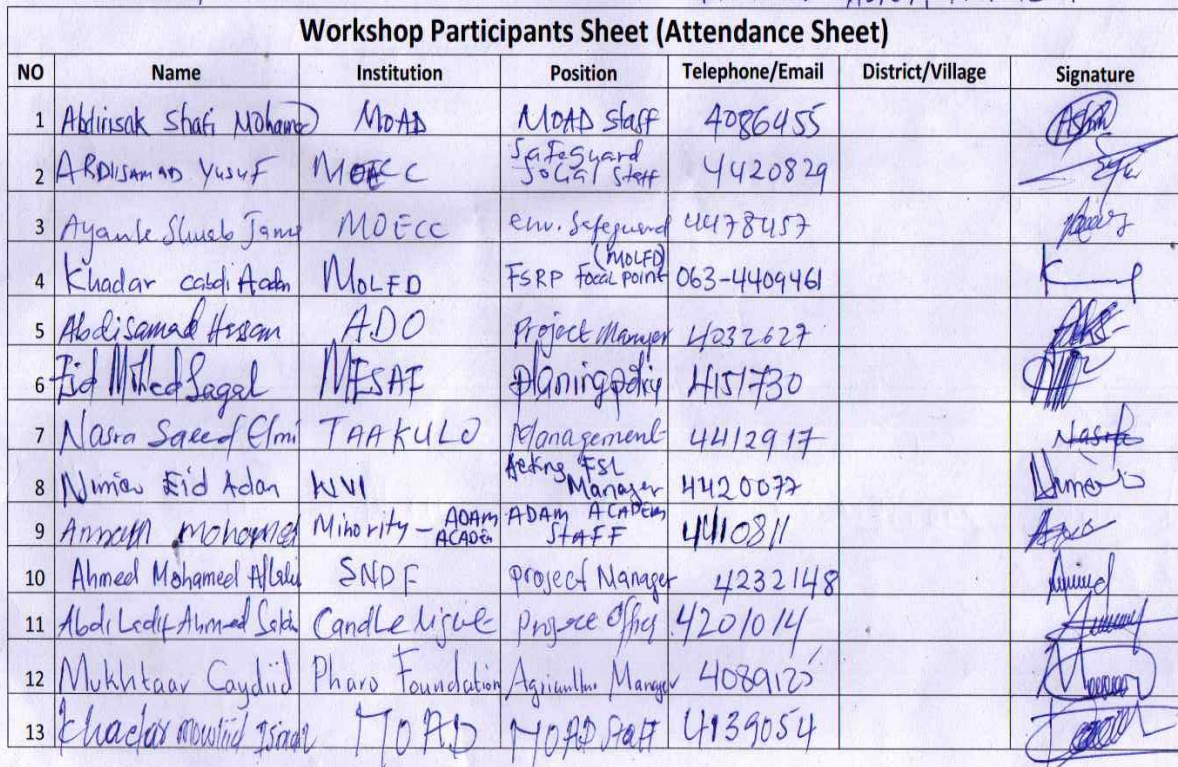 Workshop Participants Sheet (Attendance Sheet)
NO Name Institution Position Telephone/Email District/Village Signature
1 Abdirisak Shafi Mohamed MOAD MOAD staff 4086455
2 ABDISAMAD Yusuf MOECC Safeguard Social Staff 4420829
3 Ayanle Shueb Jama MOECC env. Safeguard 4478457
4 Khadar cabdi Aadan MOLFD FSRP Focal point (MOLFD) 063-4409461
5 Abdisamad Hassan ADO Project Manager 4032627
6 Eid Sagal MESAF planing 4151730
7 Nasra Saeed Elmi TAAKULO Management 4412917 Nasra
8 Eid Adan Acting FSL Manager 4420077
9 mohamed Minority - ADAM ACADEM ADAM ACADEM STAFF 4410811
10 Ahmed Mohamed SNDF project Manager 4232148
11 Ahmed Candle Project 4201014
12 Mukhtaar Caydiid Pharo Foundation Manager 4089125
13 Khadar MOAD MOAD Staff 4139054